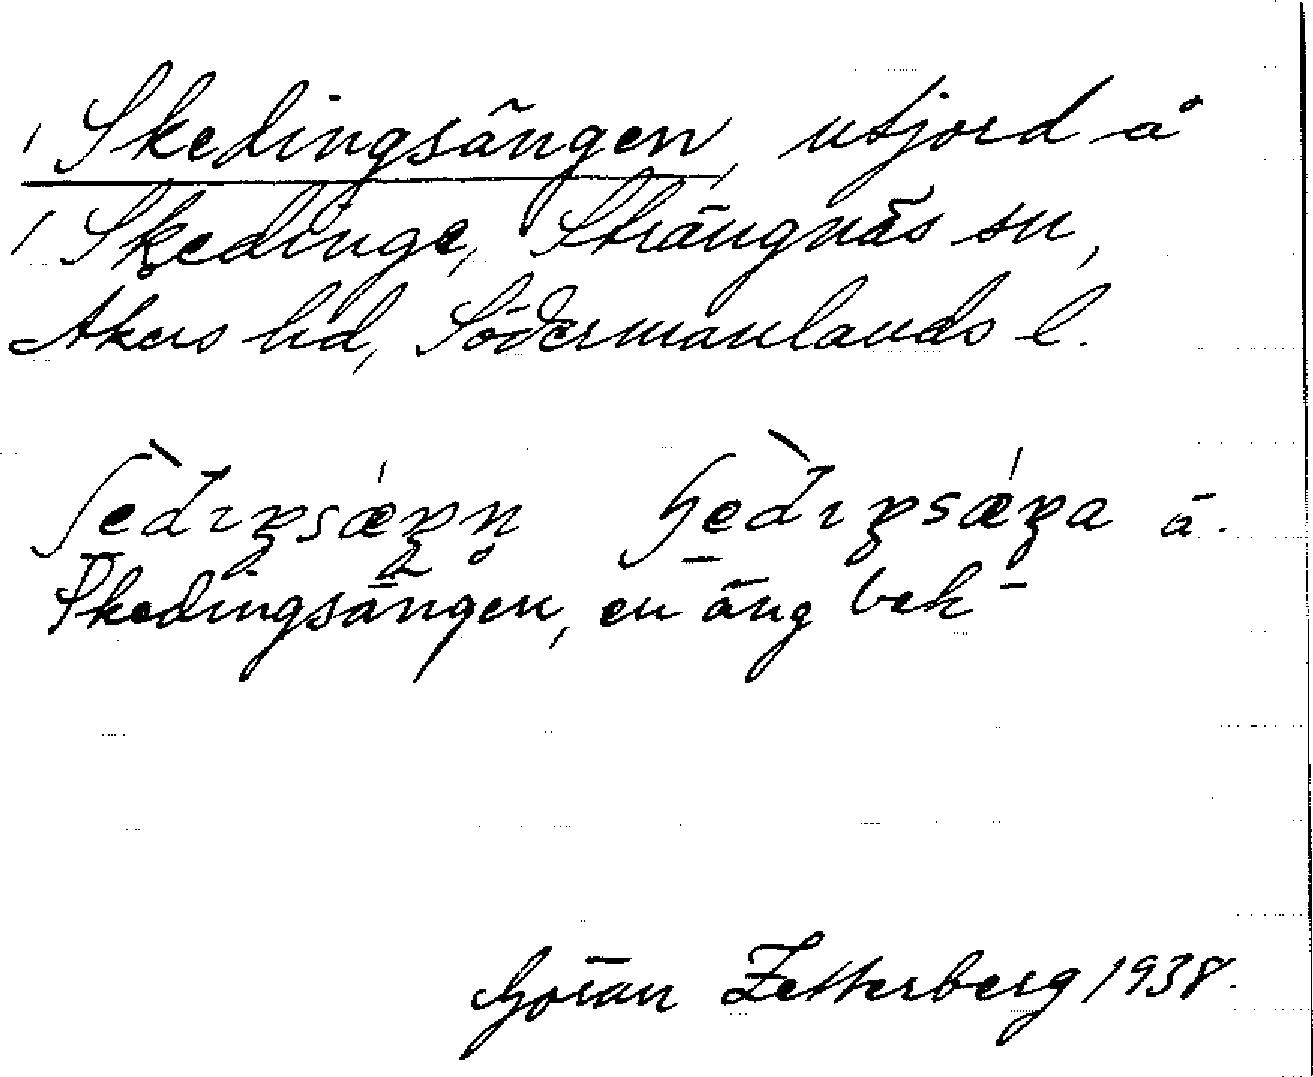 Skedingsängen, utjord å
Skedinge, Strängnäs sn,
Åkers hd, Södermanlands l.
ä.
Skedingsängen, en äng bek-
Göran Zetterberg 1938.